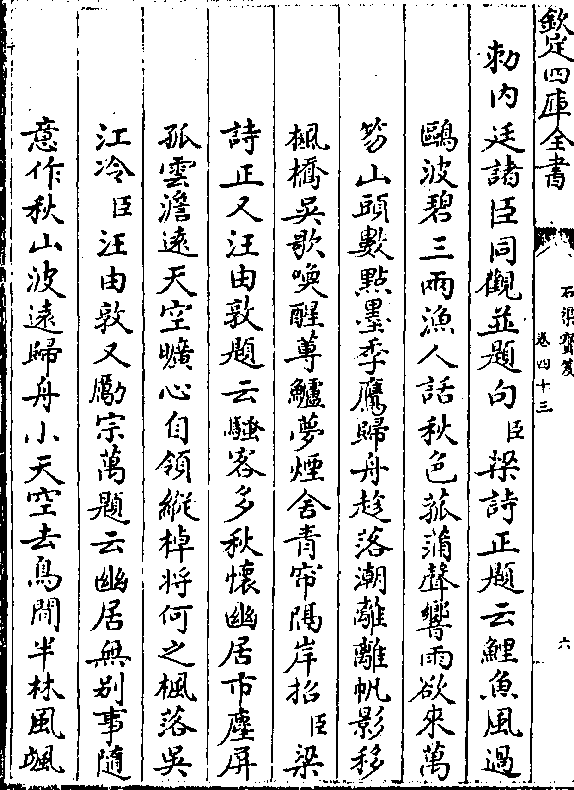 欽定四庫全書
石渠寶笈
卷四十三
六
勅內廷諸臣同觀並題句臣梁詩正題云鯉魚風過
鷗波碧三兩漁人話秋色菰蒲聲響雨欲來萬
笏山頭數點墨季鷹歸舟趁落潮離離帆影移
楓橋吳歌喚醒蓴鱸夢煙舍青帘隔岸招臣梁
詩正又汪由敦題云騷客多秋懷幽居市塵屏
孤雲澹遠天空曠心自領縱棹將何之楓落吳
江冷臣汪由敦又勵宗萬題云幽居無别事隨
意作秋山波遠歸舟小天空去鳥間半林風颯